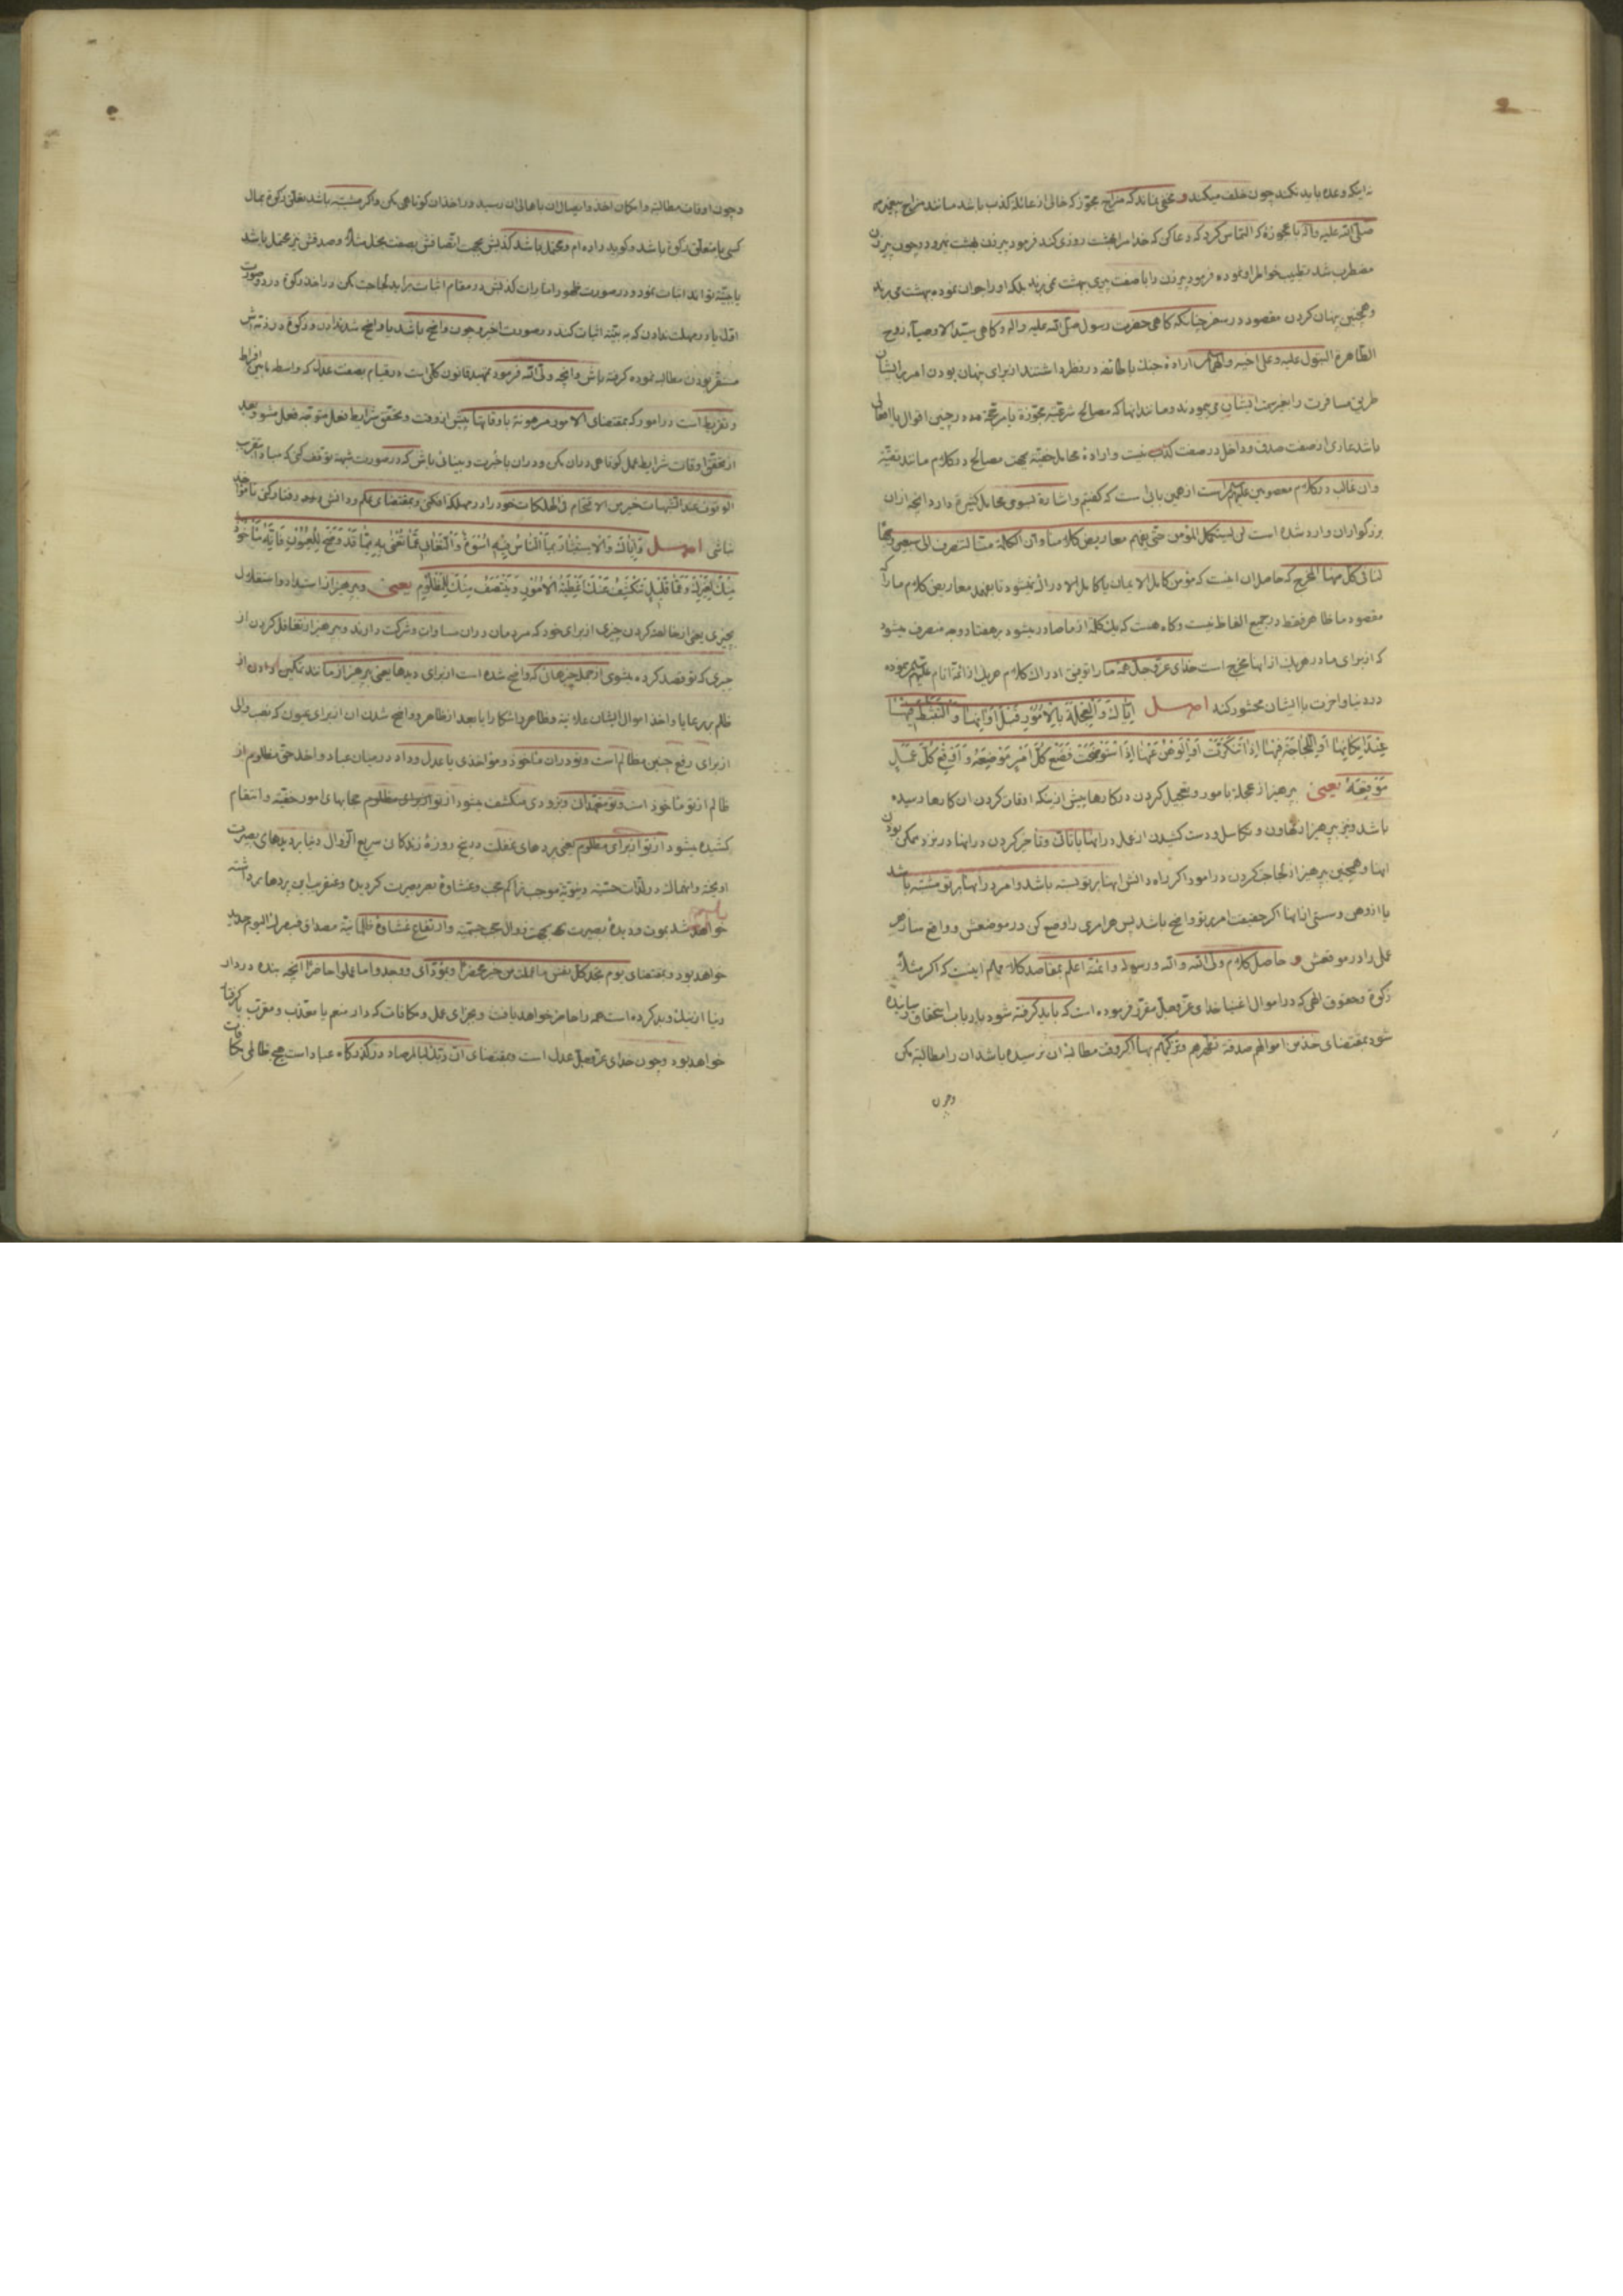 نه اینکه وعده باید نکند چون خلف میکند و مخفی نماند که مزاح مجوّز که خالی از غائله کذب باشد مانند مزاح پیغمبر
صلّی الله علیه وآله با عجوزهٔ که التماس کرد که دعا کن که خدا مرا بهشت روزی کند فرمود پیرزن بهشت نمیرود و چون پیرزن
مضطرب شد تطییب خواطر او نموده فرمود پیرزن را با صفت پیری بهشت نمی برند بلکه او را جوان نموده بهشت می برند
وهمچنین پنهان کردن مقصود در سفر چنانکه کاهی حضرت رسول صلّی الله علیه واله وکاهی سیّد الاوصیاء زوج
الطّاهرة البتول علیه وعلی اخیه والهما ارادهٔ جنك با طائفه در نظر داشتند از برای پنهان بودن امر بر ایشان
طریق مسافرت را بغیر سمت ایشان می پیمودند ومانند اینها که مصالح شرعیّه مجوّزة یا مرجّحة دارد چنین اقوال یا افعالی
باشد عاری از صفت صدق وداخل در صفت کذب نیست وارادهٔ محامل خفیّه بجهت مصالح در کلام مانند تقیّه
وان غالب در کلام معصومین علیهم است از همین بابی است که کفتیم واشارة لسبوی محامل کثیرة دارد انچه از ان
بزرکواران وارد شده است لن یستکمل المؤمن حتّی یفهم معاریض کلامنا وان الکلمة منّا لتصرف الی سبعین وجها
لنا فی کل منها المخرج که حاصل ان اینست که مؤمن کامل الایمان یا کامل الادراك نمیشود تا بفهمد معاریض کلام ما را که
مقصود ما ظاهر فقط در جمیع الفاظ نیست وکاه هست که یك کلمه از ما صادر میشود بر هفتاد وجه منصرف میشود
که از برای ما در هریك از انها مخرج است خدای عزّ وجل همه ما را توفیق ادراك کلام هریك از ائمّه انام علیهم نموده
در دنیا واخرت با ایشان محشور کند اصل ایّاك وَالْعَجَلَةَ بِالْاُمُورِ قَبْلَ اَوَانِهَا وَالتَّثَبُّطَ فِیهَا
عِنْدَ اِمْکَانِهَا اَوِ اللَّجَاجَةَ فِیهَا اِذَا تَنَکَّرَتْ اَوِ الْوَهْنَ عَنْهَا اِذَا اسْتَوْضَحَتْ فَضَعْ کُلَّ اَمْرٍ مَوْضِعَهُ وَاَوْقِعْ کُلَّ عَمَلٍ
مَوْقِعَهُ یعنی بپرهیز از عجلة بامور وتعجیل کردن در کارها پیش از ینکه اوقات کردن ان کارها رسیده
باشد ونیز بپرهیز از تهاون وتکاسل ودست کشیدن از عمل در انها یا تانّی وتاخیر کردن در انها در نزد ممکن بودن
انها وهمچنین بپرهیز از لجاجت کردن در امور اکر راه دانش انها بر تو بسته باشد وامر در انها بر تو مشتبه باشد
یا از وهن وسستی از انها اکر حقیقت امر بر تو واضح باشد پس هر امری را وضع کن در موضعش و واقع ساز هر
عمل را در موقعش و حاصل کلام ولیّ الله والله ورسوله وائمّته اعلم بمقاصد کلامهم اینست که اکر مثلاً
زکوة وحقوق الهی که در اموال اغنیا خدای عزّ وجلّ مقرّر فرموده است که باید کرفته شود بارباب استحقاق رسانیده
شود بمقتضای خذ من اموالهم صدقة تطهّرهم وتزکیهم بها اکر وقت مطالبهٔ ان نرسیده باشد ان را مطالبه مکن
وچون
وچون اوقات مطالبه وامکان اخذ وایصال ان باهالی ان رسید در اخذ ان کوتاهی مکن واکر مشتبه باشد تعلّق زکوة بمال
کسی یا متعلّق زکوة باشد وکوید داده ام ومحتمل باشد کذبش بجهت اتّصافش بصفت بخل مثلاً وصدقش نیز محتمل باشد
یا بیّنه تواند اثبات نمود ودر صورت ظهور امارات کذبش در مقام اثبات براید لجاجت مکن در اخذ زکوة در دو صورت
اوّل یا در مهلت ندادن که به بیّنه اثبات کند در صورت اخیر وچون واضح باشد یا واضح شد ندادن وزکوة در ذمّه اش
مستقر بودن مطالبه نموده کرفته باش وانچه ولیّ الله فرمود تمهید قانون کلّی است در قیام بصفت عدل که واسطه مابین افراط
وتفریط است در امور که بمقتضای الامور مرهونة باوقاتها پیش از وقت وتحقّق شرایط بفعل متوجّه فعل مشو وبعد
از تحقّق اوقات شرایط عمل کوتاهی در ان مکن ودر ان با خبرت وبینائی باش که در صورت شبهه توقف کنی که مبادا بتقریب
الوقوف عند الشبهات خیر من الاقتحام فی الهلکات خود را در مهلکه افکنی وبمقتضای علم ودانش خود رفتار کنی تا مؤاخذ
نباشی اصل وَاِیَّاكَ وَالْاِسْتِئْثَارَ بِمَا النَّاسُ فِیهِ اُسْوَةٌ وَالتَّغَابِیَ عَمَّا تُعْنٰی بِهِ مِمَّا قَدْ وَضَحَ لِلْعُیُونِ فَاِنَّهُ مَأْخُوذٌ
مِنْكَ لِغَیْرِكَ وَعَمَّا قَلِیلٍ تَنْکَشِفُ عَنْكَ اَغْطِیَةُ الْاُمُورِ وَیُنْتَصَفُ مِنْكَ لِلْمَظْلُومِ یعنی وبپرهیز از استبداد واستقلال
بچیزی یعنی از خالصه کردن چیزی از برای خود که مردمان در ان مساوات وشرکت دارند وبپرهیز از تغافل کردن از
چیزی که تو قصد کرده میشوی از جمله چیزهائی که واضح شده است از برای دیدها یعنی بپرهیز از مانند تمکین دادن از
ظلم بر رعایا واخذ اموال ایشان علانیة وظاهر واشکارا یا بعد از ظاهر وواضح شدن ان از برای عیون که نصب والی
از برای رفع چنین مظالم است وتو در ان ماخوذ ومؤاخذی یا عدل وداد در میان عباد واخذ حق مظلوم از
ظالم از تو ماخوذ است وتو متعهّد ان وبزودی منکشف میشود از تو از برای مظلوم حجابهای امور خفیّه وانتقام
کشیده میشود از تو از برای مظلوم یعنی پردهای غفلت در پنج روزهٔ زندکانی سریع الزّوال دنیا بر دیدهای بصیرت
اویخته وانهماك در لذّات حسّیّه دنیویّه موجب تراکم حجب وغشاوهٔ بصر بصیرت کردیده وعنقریب این پردها برداشته
خواهد شد بموت ودیدهٔ بصیرت بجهت زوال حجب جسمیّه وارتفاع غشاوهٔ ظلمانیّه مصداق فبصرك الیوم حدید
خواهد بود وبمقتضای یوم تجد کل نفس ما عملت من خیر محضرًا ومؤدّای ووجدوا ما عملوا حاضرًا انچه بنده در دار
دنیا از نیك وبد کرده است همه را حاضر خواهد یافت وبجزای عمل ومکافات کردار منعم یا معذّب ومقرّب یا کرفتار
خواهد بود وچون خدای عزّ وجلّ عدل است وبمقتضای انّ ربّك لبالمرصاد در کذرکاه عباد است هیچ ظالمی مکافات